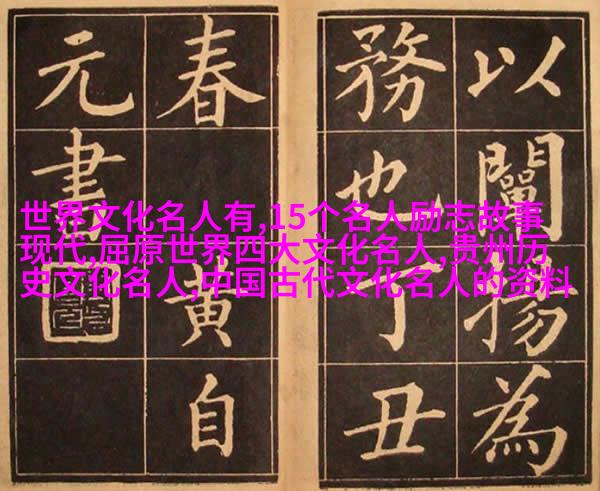 以闡揚為
務也丁丑
春黄自
元書
世界文化名人有,15个名人励志故事
现代,屈原世界四大文化名人,贵州历
史文化名人,中国古代文化名人的资料